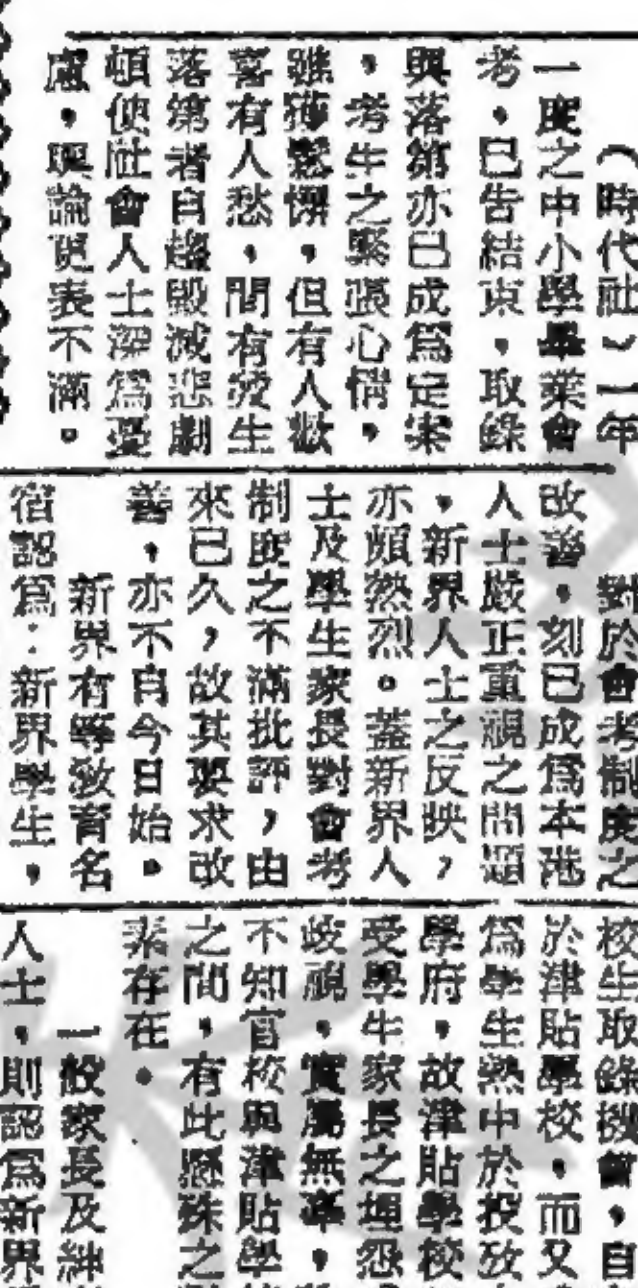 （時代社）一年
一度之中小學畢業會
考，已告結束，取錄
與落第亦已成爲定案
，考生之緊張心情，
雖獲鬆懈，但有人歡
喜有人愁，間有發生
落第者自趨毀滅悲劇
頓使社會人士深爲憂
慮，輿論更表不滿。
對於會考制度之
改善，刻已成爲本港
人士嚴正重視之問題
，新界人士之反映，
亦頗熱烈。蓋新界人
士及學生家長對會考
制度之不滿批評，由
來已久，故其要求改
善，亦不自今日始。
新界有等教育名
宿認爲：新界學生，
校生取錄機會，自
於津貼學校，而又
爲學生熱中於投攷
學府，故津貼學校
受學生家長之埋怨
歧視，實屬無辜，
不知官校與津貼學
之間，有此懸殊之
素存在。
一般家長及紳
人士，則認爲新界